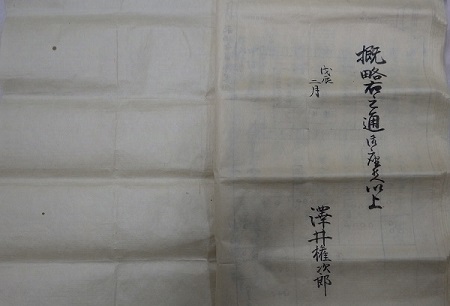 概略右之通御座候以上
戊辰
二月
澤井権次郎